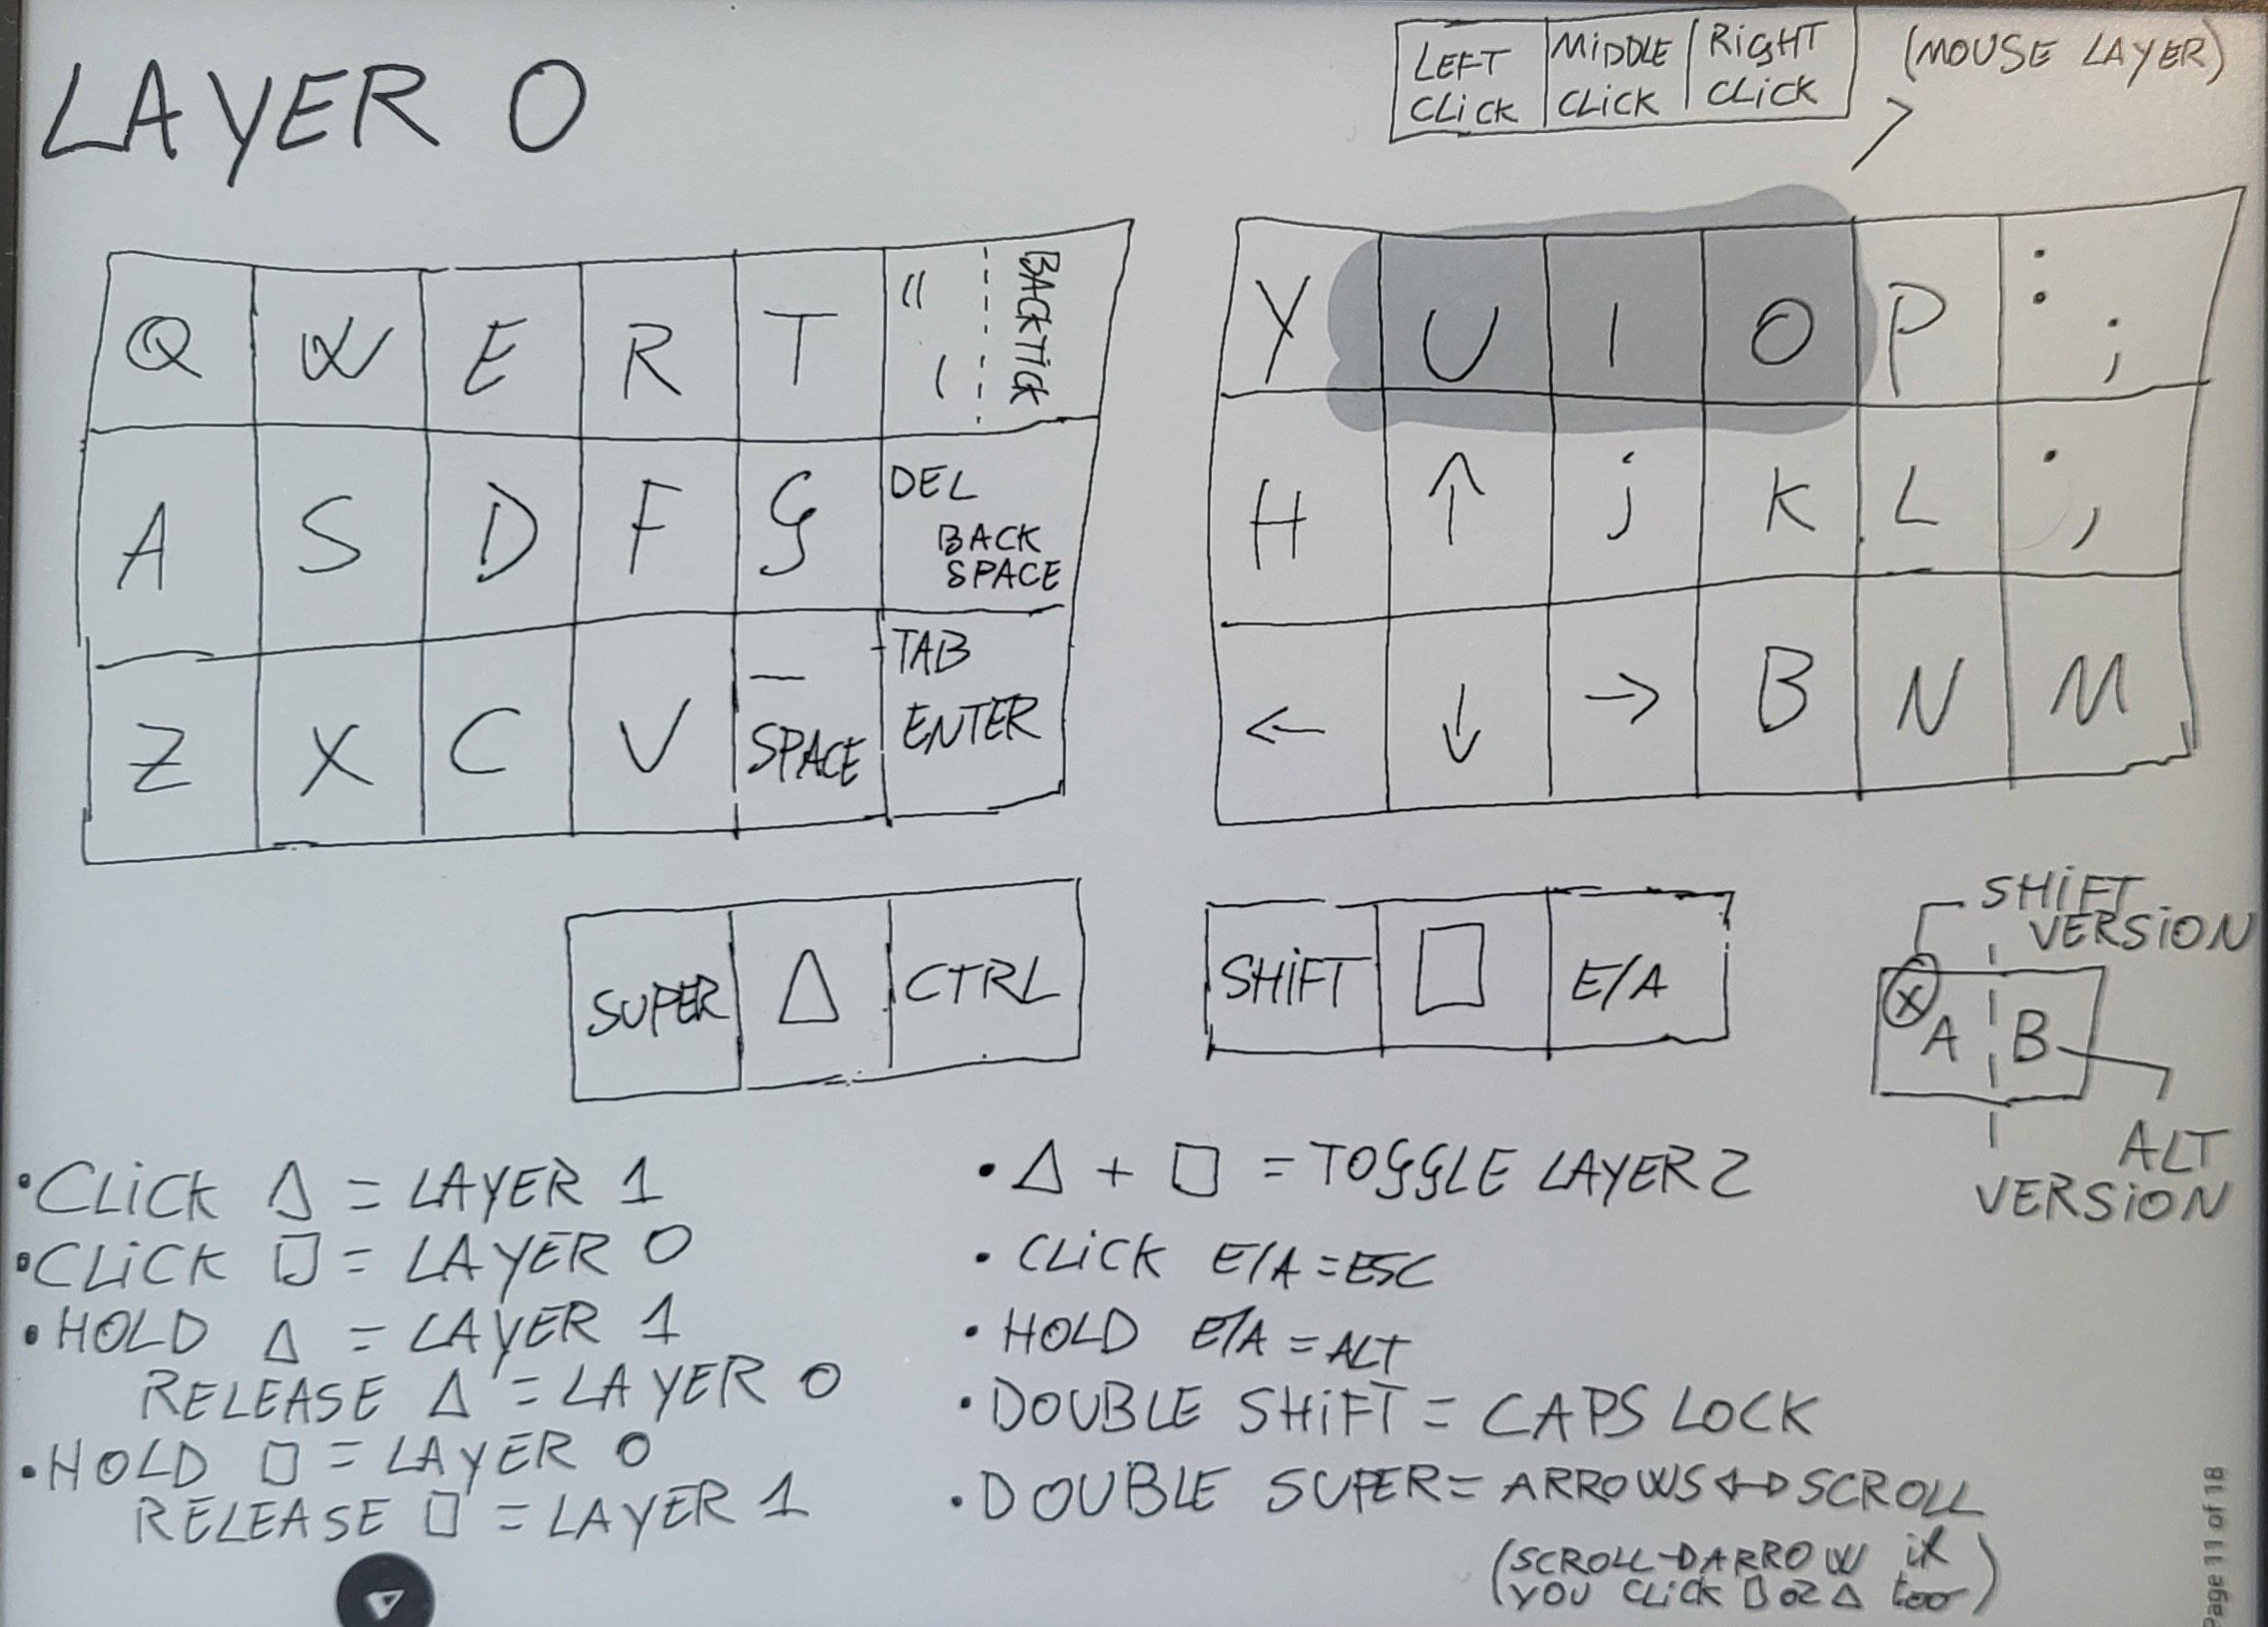 LAYER 0
LEFT CLICK
MIDDLE CLICK
RIGHT CLICK
(MOUSE LAYER)
Q W E R T " ' BACKTICK
A S D F G DEL BACK SPACE
Z X C V _ SPACE TAB ENTER
Y U I O P : ;
H ↑ j K L . ,
← ↓ → B N M
SUPER △ CTRL
SHiFT □ E/A
SHiFT
VERSiON
X A B
ALT
VERSiON
• CLiCK △ = LAYER 1
• CLiCK □ = LAYER 0
• HOLD △ = LAYER 1
RELEASE △ = LAYER 0
• HOLD □ = LAYER 0
RELEASE □ = LAYER 1
• △ + □ = TOGGLE LAYER 2
• CLiCK E/A = ESC
• HOLD E/A = ALT
• DOUBLE SHiFT = CAPS LOCK
• DOUBLE SUPER = ARROWS ↔ SCROLL
(SCROLL → ARROW if
YOU CLiCK □ OR △ too)
Page 11 of 18